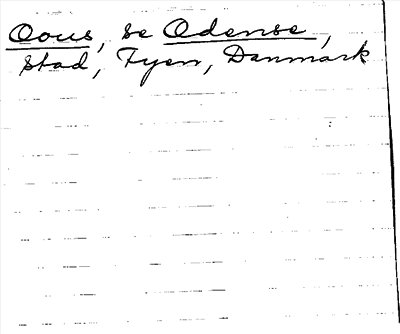 Oous, se Odense,
stad, Fyen, Danmark